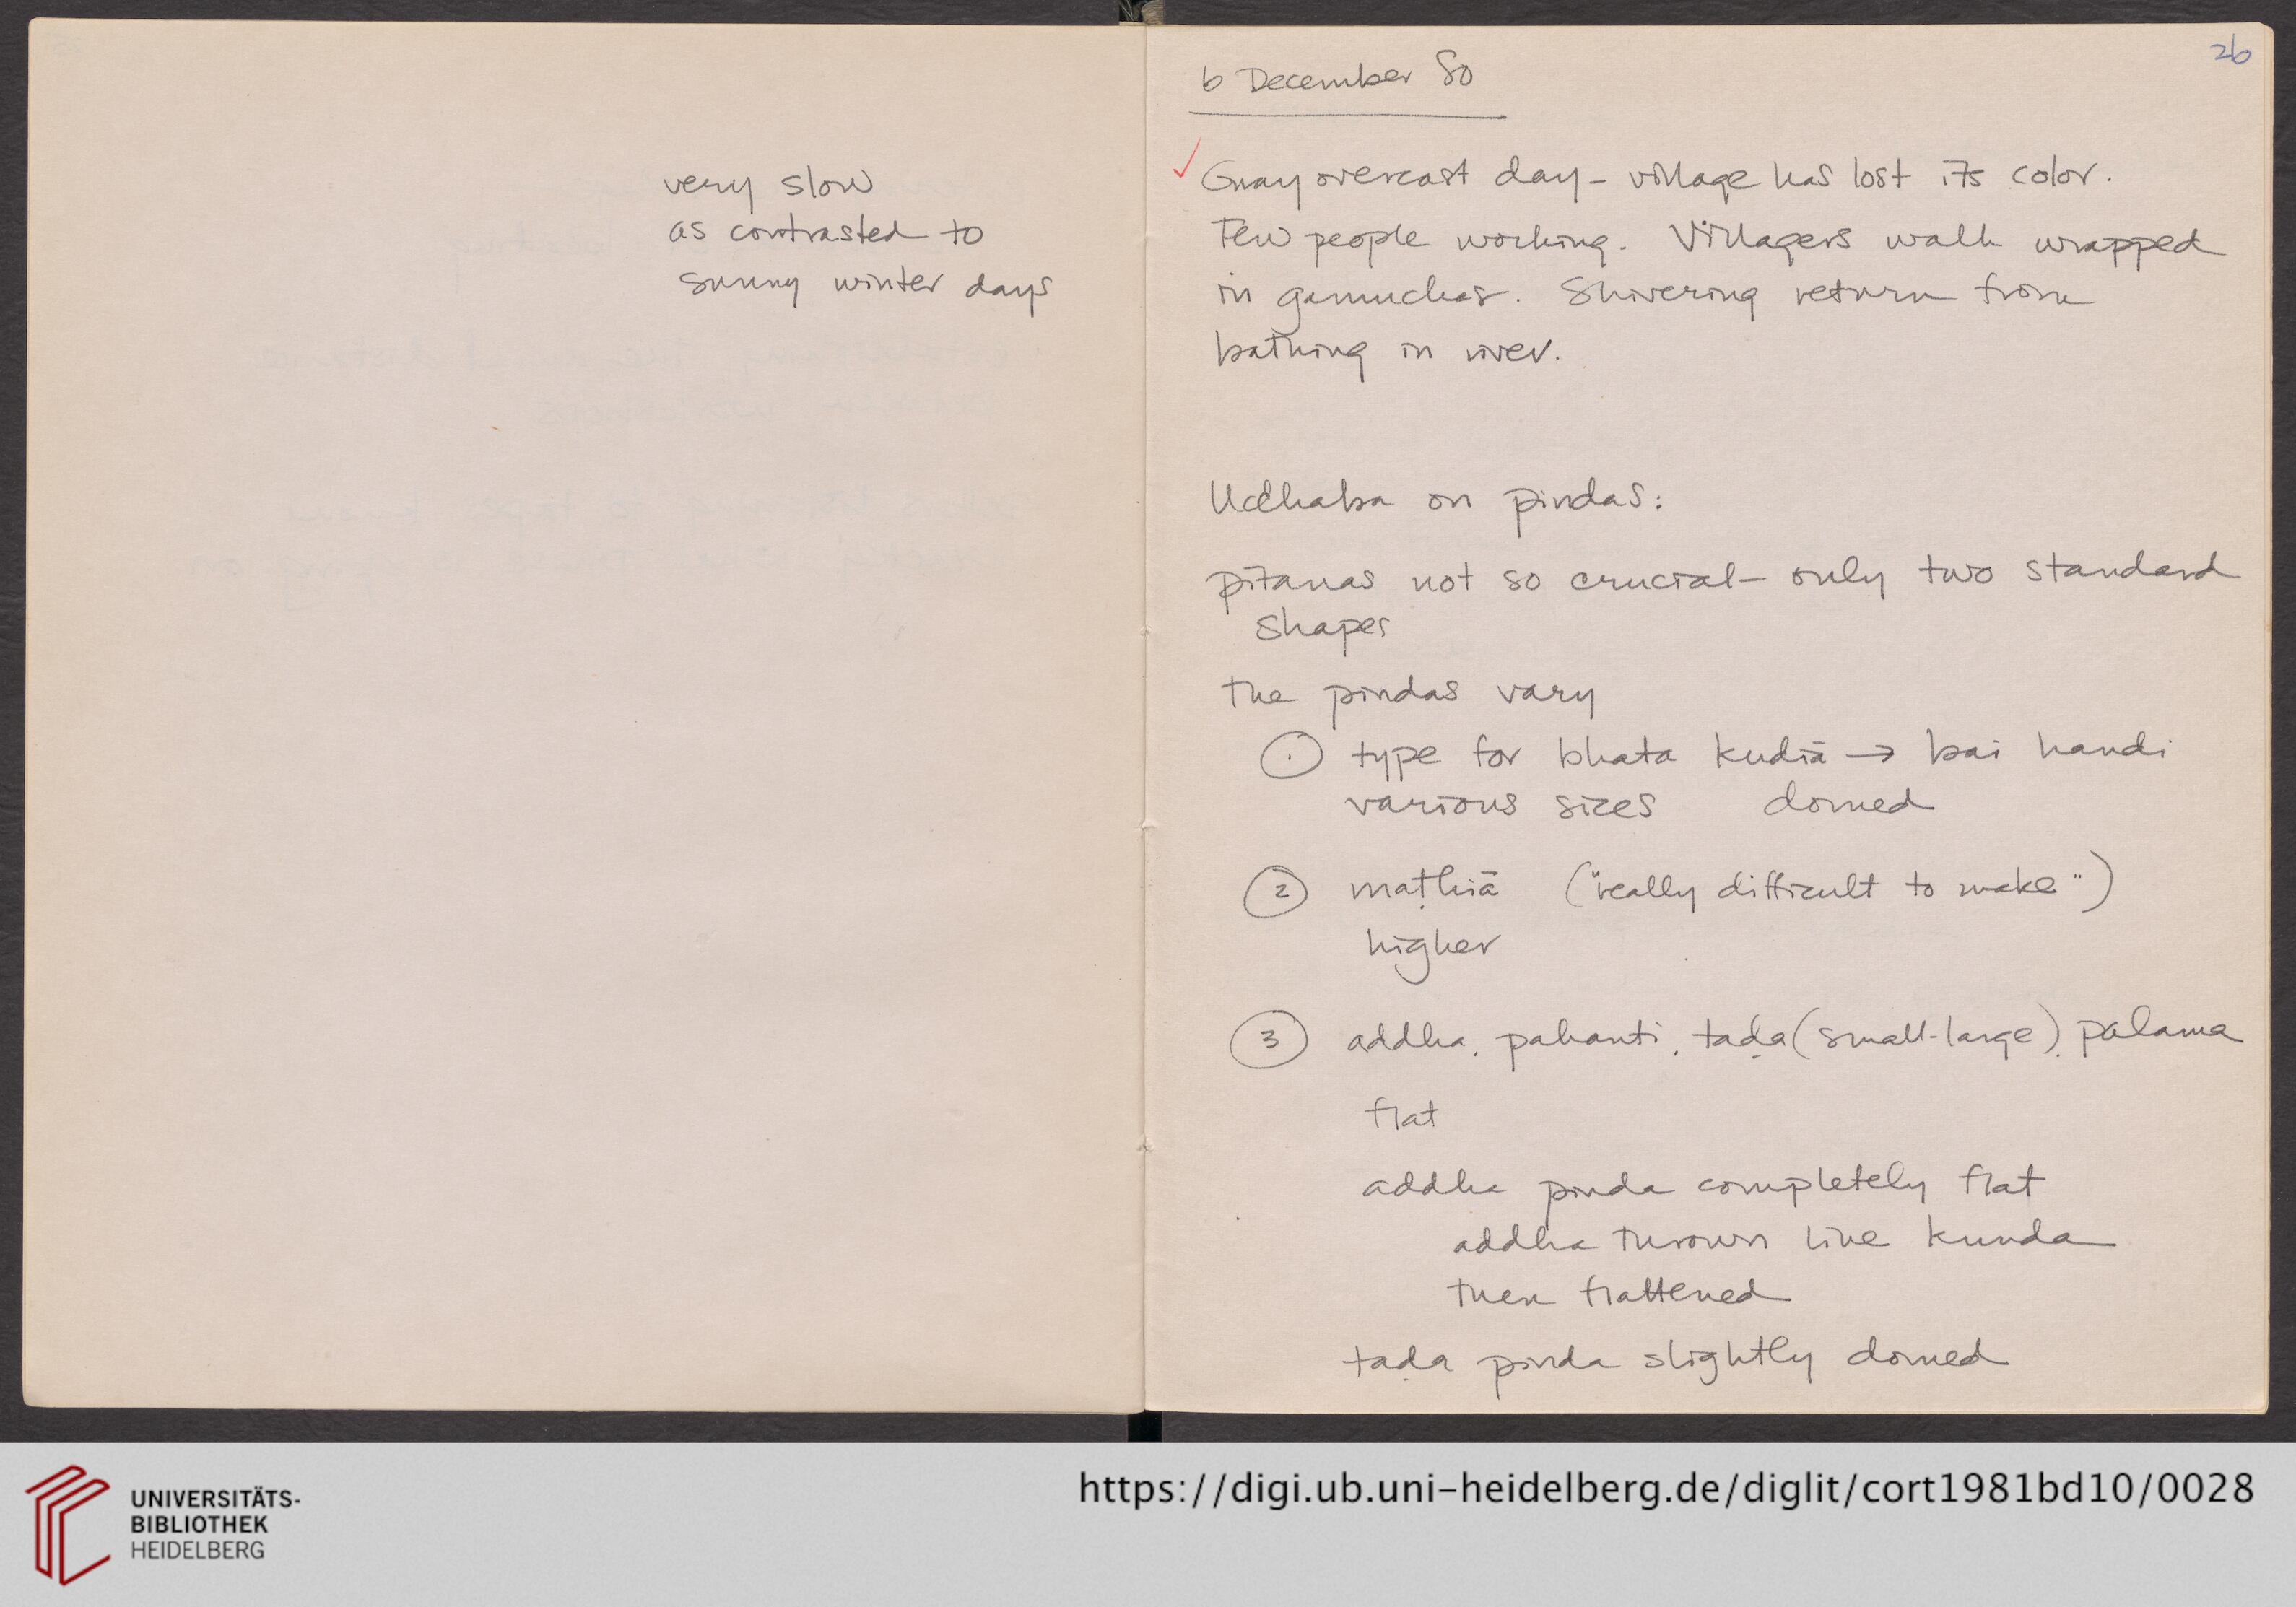 very slow
as contrasted to
sunny winter days
26
6 December 80
✓ Gray overcast day – village has lost its color.
Few people working. Villagers walk wrapped
in gamuchas. Shivering return from
bathing in river.
Udhaba on pindas:
pitanas not so crucial – only two standard
shapes
the pindas vary
① type for bhata kudiā → bai handi
various sizes domed
② maṭhiā ("really difficult to make")
higher
③ addha, pahanti, taḍa (small-large), palama
flat
addha pinda completely flat
addha thrown like kunda
then flattened
taḍa pinda slightly domed
UNIVERSITÄTS-
BIBLIOTHEK
HEIDELBERG
https://digi.ub.uni-heidelberg.de/diglit/cort1981bd10/0028